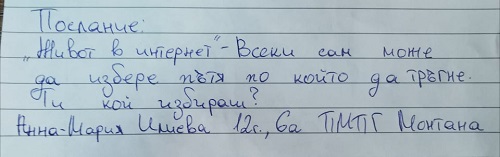 Послание:
„Живот в интернет" - Всеки сам може
да избере пътя по който да тръгне.
Ти кой избираш?
Анна-Мария Илиева 12г., 6а ПМПГ Монтана